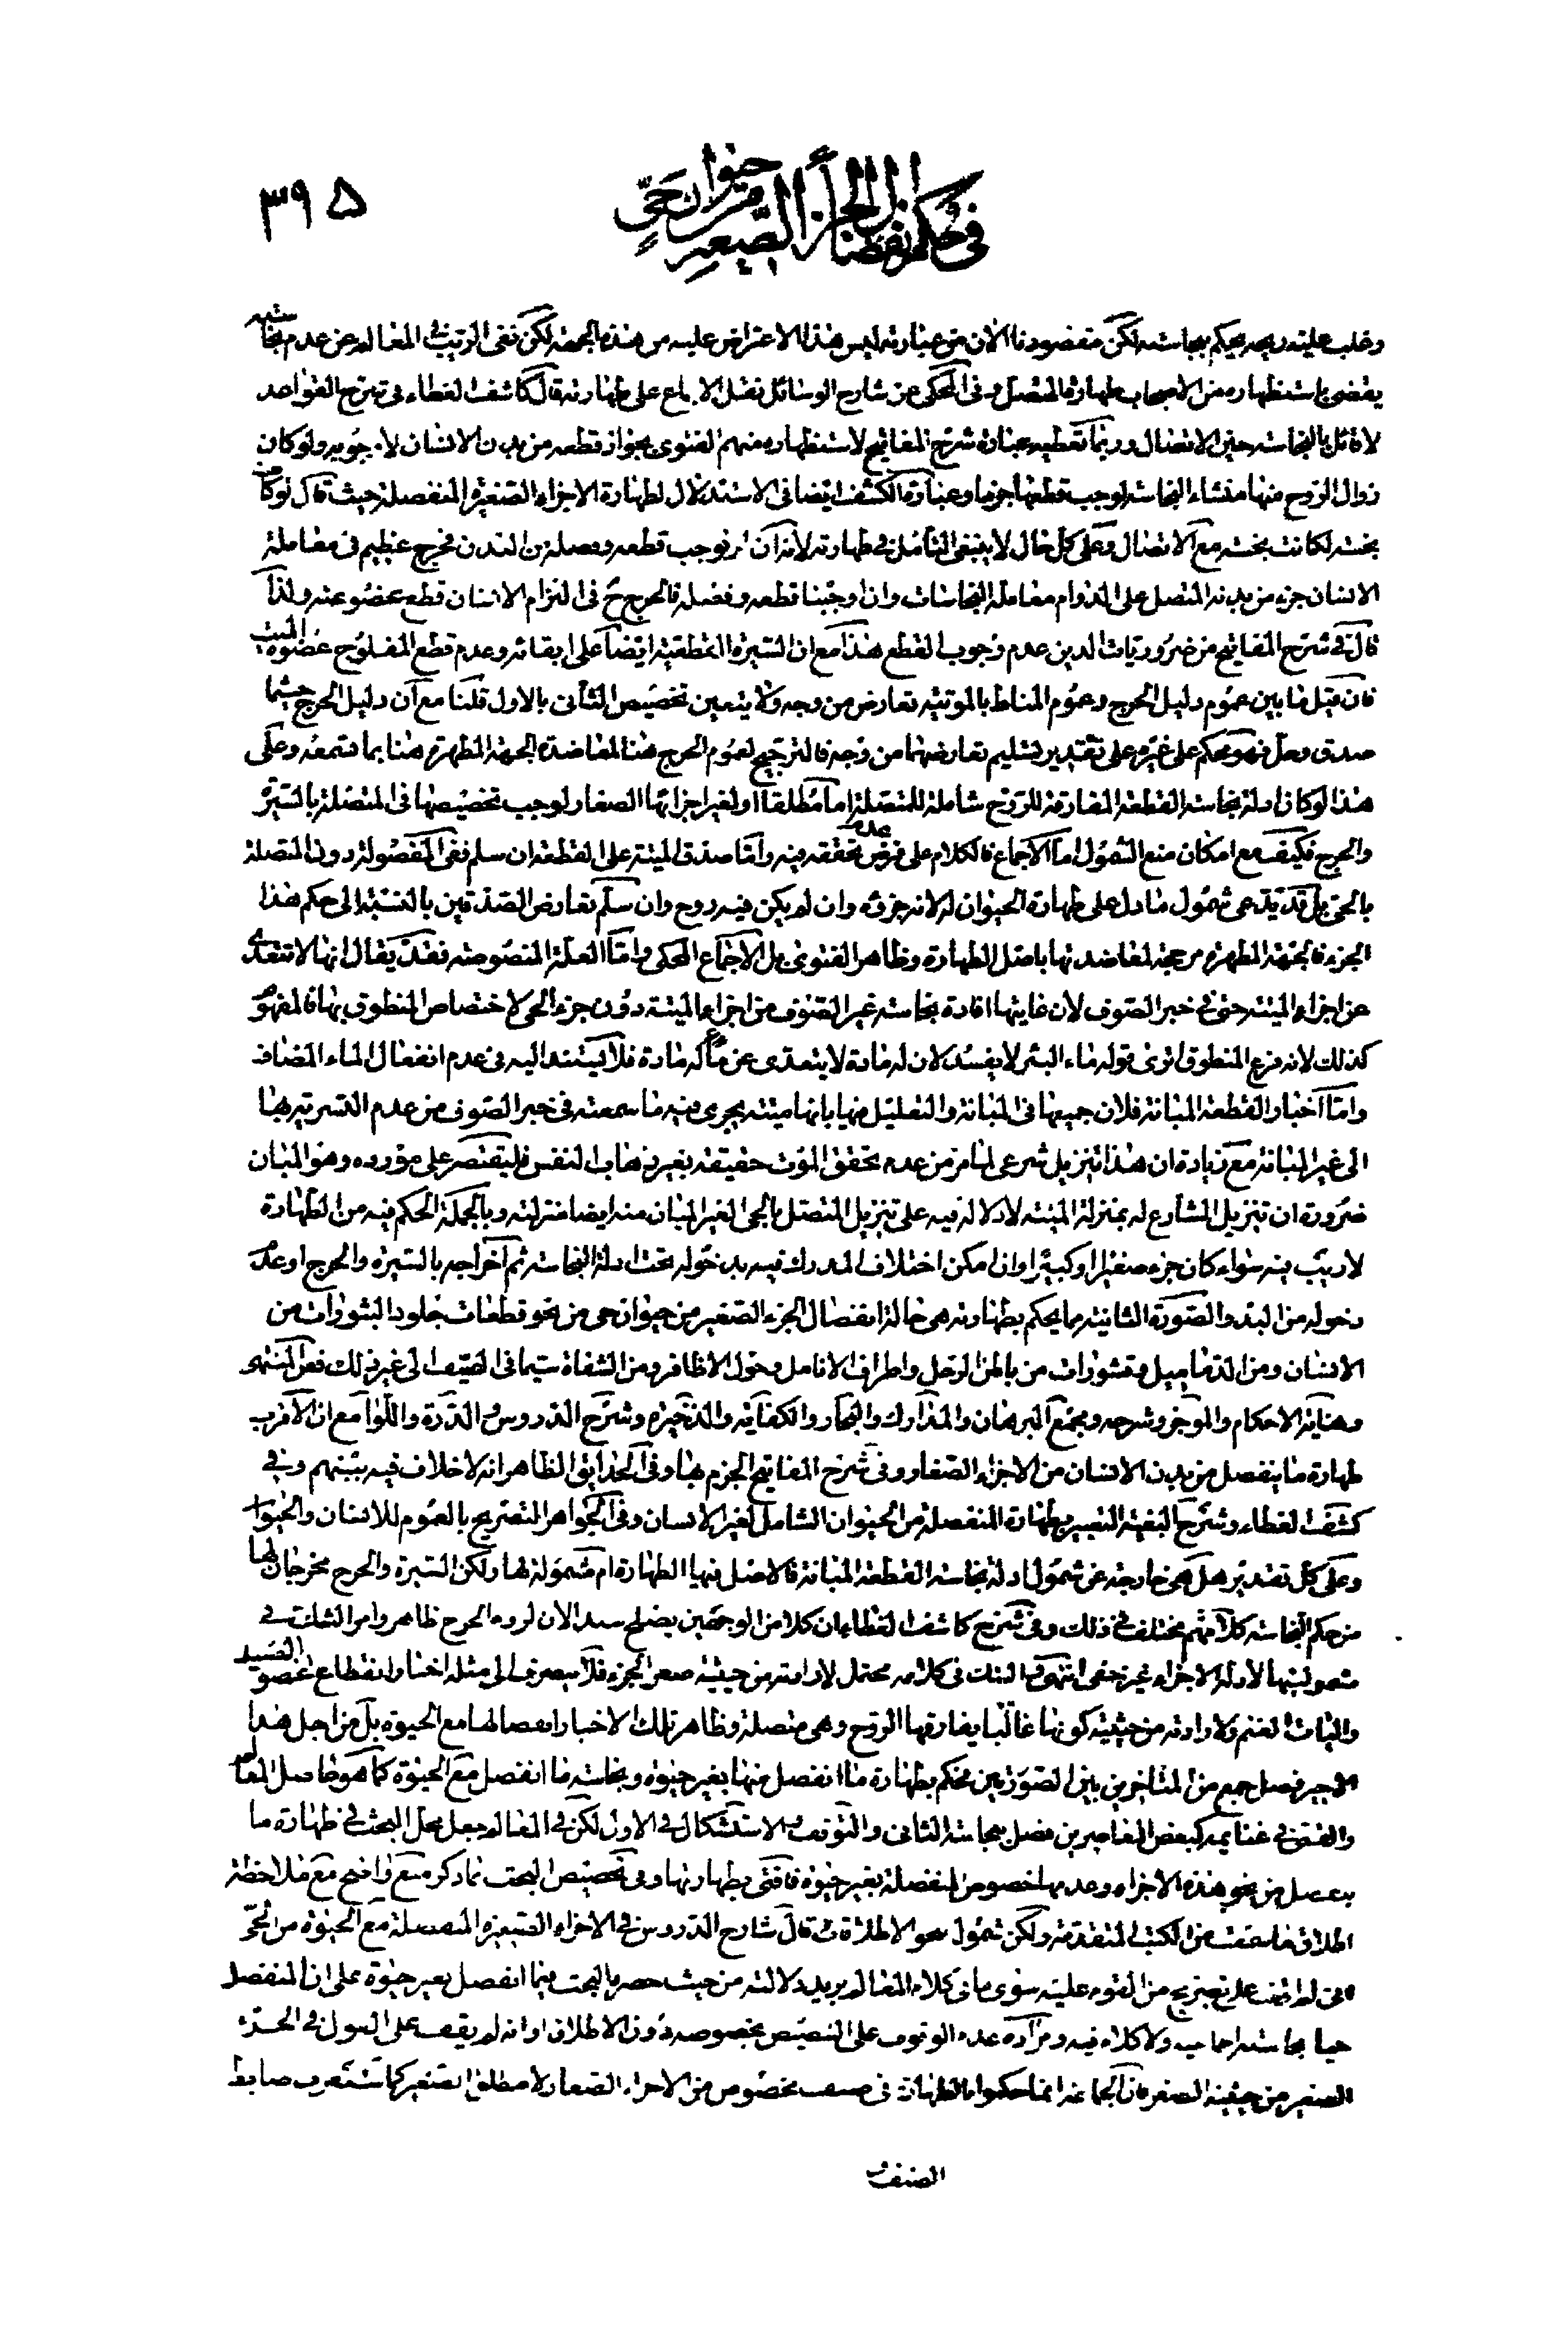 في حكم انفصال الجزء الصغير من حيوان حي
۳۹۵
وغلب عليته ريحه يحكم بنجاسته لكن مقصودنا الان من عبارته ليس هذا الاعتراض عليه من هذه الجهة لكن نفى الريب في المعالم عن عدم نجاسته
يقضى باستظهاره من الاصحاب طهارة المتصل وفى المحكى عن شارح الوسائل نقل الاجماع على طهارته قال كاشف الغطاء في شرح القواعد
لا قائل بالنجاسة حين الاتصال وربما تعطيه عبارة شرح المفاتيح لاستظهاره منهم الفتوى بجواز قطعه من بدن الانسان لا وجوبه ولو كان
زوال الروح منها منشاء النجاسة لوجب قطعها جزما وعبارة الكشف ايضا فى الاستدلال لطهارة الاجزاء الصغيرة المنفصلة حيث قال لو كانت
نجسة لكانت نجسة مع الاتصال وعلى كل حال لا ينبغى التامل في طهارته لانه ان لم نوجب قطعه وفصله من البدن فحرج عظيم فى معاملة
الانسان جزء من بدنه المتصل على الدوام معاملة النجاسات وان اوجبنا قطعه وفصله فالحرج ح فى التزام الانسان قطع عضو عنه ولذا
قال في شرح المفاتيح من ضروريات الدين عدم وجوب القطع هذا مع ان السيرة القطعية ايضا على ابقائه وعدم قطع المفلوج عضوه الميت
فان قيل ما بين عموم دليل الحرج وعموم المناط بالموتية تعارض من وجه ولا يتعين تخصيص الثانى بالاول قلنا مع ان دليل الحرج حيثما
صدق وحل فهو محكم على غيره على تقدير تسليم تعارضهما من وجه فالترجيح لعموم الحرج هنا لمعاضدة الجهة المطهرة هنا بما ستسمعه وعلى
هذا لو كان ادلة نجاسة القطعة المفارقة للروح شاملة للمتصلة اما مطلقا او لغير اجزائها الصغار لوجب تخصيصها فى المتصلة بالسيرة
والحرج فكيف مع امكان منع الشمول اما الاجماع فالكلام على فرض عدم تحققه فيه واما صدق الميتة على القطعة ان سلم ففى المفصولة دون المتصلة
بالحى بل قد يدعى شمول ما دل على طهارة الحيوان له لانه جزؤه وان لم يكن فيه روح وان سلم تعارض الصدقين بالنسبة الى حكم هذا
الجزء فالجهة المطهرة مرجحة لمعاضدتها باصل الطهارة وظاهر الفتوى بل الاجماع المحكى واما العلة المنصوصة فقد يقال انها لا تتعدى
عن اجزاء الميتة حتى في خبر الصوف لان غايتها افادة نجاسة غير الصوف من اجزاء الميتة دون جزء الحى لاختصاص المنطوق بها فالمفهوم
كذلك لانه فرع المنطوق اترى قوله ماء البئر لا يفسد لان له مادة لا يتعدى عن ماء له مادة فلا يستند اليه فى عدم انفعال الماء المضاف
واما اخبار القطعة المبانة فلان جميعها فى المبانة والتعليل فيها بانها ميتة يجرى فيه ما سمعته فى خبر الصوف من عدم التسرية بها
الى غير المبانة مع زيادة ان هذا تنزيل شرعى لما مر من عدم تحقق الموت حقيقة بغير ذهاب النفس فليقتصر على مورده وهو المبان
ضرورة ان تنزيل الشارع له بمنزلة الميتة لا دلالة فيه على تنزيل المتصل بالحى الغير المبان منه ايضا منزلته وبالجملة الحكم فيه من الطهارة
لا ريب فيه سواء كان جزء صغيرا او كبيرا وان امكن اختلاف المدرك فيه بدخوله تحت ادلة النجاسة ثم اخراجه بالسيرة والحرج او عدم
دخوله من البدو والصورة الثانية مما يحكم بطهارته هى حالة انفصال الجزء الصغير من حيوان حى من نحو قطعات جلود البثورات من
الانسان ومن الدماميل وقشورات من باطن الرجل واطراف الانامل وحول الاظافر ومن الشفاة سيما فى الصيف الى غير ذلك فعن المنتهى
ونهاية الاحكام والموجز وشرحه ومجمع البرهان والمدارك والبحار والكفاية والذخيرة وشرح الدروس والدرة واللوامع ان الاقرب
طهارة ما ينفصل من بدن الانسان من الاجزاء الصغار وفى شرح المفاتيح الجزم بها وفى الحدائق الظاهر انه لا خلاف فيه بينهم وفي
كشف الغطاء وشرح البغية التعبير بطهارة المنفصلة من الحيوان الشامل لغير الانسان وفى الجواهر التصريح بالعموم للانسان والحيوان
وعلى كل تقدير هل هى خارجة عن شمول ادلة نجاسة القطعة المبانة فالاصل فيها الطهارة ام مشمولة لها ولكن السيرة والحرج مخرجان لها
من حكم النجاسة كلامهم مختلف في ذلك وفى شرح كاشف الغطاء ان كلا من الوجهين يصلح سندا لان لزوم الحرج ظاهر وامر الشك في
مشموليتها لادلة الاجزاء غير خفى انتهى والشك فى كلامه محتمل لارادته من حيثية صغر الجزء فلا ينصرف الى مثله اخبار انقطاع عضو الصيد
واليات الغنم ولارادته من حيثية كونها غالبا يفارقها الروح وهى متصلة وظاهر تلك الاخبار انفصالها مع الحيوة بل من اجل هذا
الاخير فصل جمع من المتاخرين بين الصورتين فحكم بطهارة ما انفصل منها بغير حيوة ونجاسة ما انفصل مع الحيوة كما هو ظاهر المعالم
والقمى في غنايمه كبعض المعاصرين فصل بنجاسة الثانى والتوقف والاستشكال في الاول لكن في المعالم جعل محل البحث في طهارة ما
ينفصل من نحو هذه الاجزاء وعدمها خصوص المنفصلة بغير حيوة فافتى بطهارتها وفى تخصيص البحث بما ذكر منع واضح مع ملاحظة
اطلاق ما سمعت من الكتب المتقدمة ولكن شمول نحو الاطلاق قال شارح الدروس في الاجزاء الصغيرة المنفصلة مع الحيوة من الحى
انى لم اقف على تصريح من القوم عليته سوى ما فى كلام المعالم يريد دلالته من حيث حصر البحث فيما انفصل بغير حيوة على ان المنفصل
حيا نجاسته اجماعية ولا كلام فيه ومراده عدم الوقوف على التنصيص بخصوصه دون الاطلاق او انه لم يقف على القول في الجزء
الصغير من حيثية الصغر فان الجماعة انما حكموا بالطهارة فى صنف مخصوص من الاجزاء الصغار لا مطلق الصغير كما ستعرف ضابط
الصنف